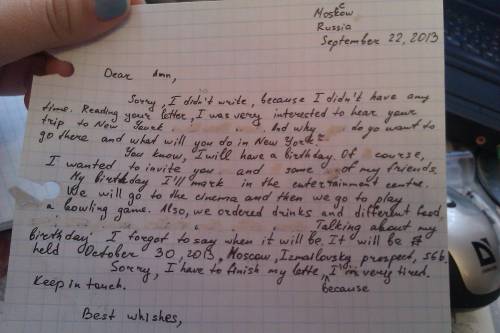 Moskcow
Russia
September 22, 2013
Dear Ann,
Sorry, I didn't write, because I didn't have any
time. Reading your letter, I was very interected to hear your
trip to New York. And why do go want to
go there and what will you do in New York?
You know, I will have a birthday. Of course,
I wanted to invite you and some of my friends.
My birthday I'll mark in the entertainment centre.
We will go to the cinema and then we go to play
a bowling game. Also, we ordered drinks and different food.
Talking about my
birthday, I forgot to say when it will be. It will be
held October 30, 2013, Moscow, Izmailovsky prospect,
Sorry, I have to finish my lette, because I'm very tired.
Keep in touch.
Best whishes,